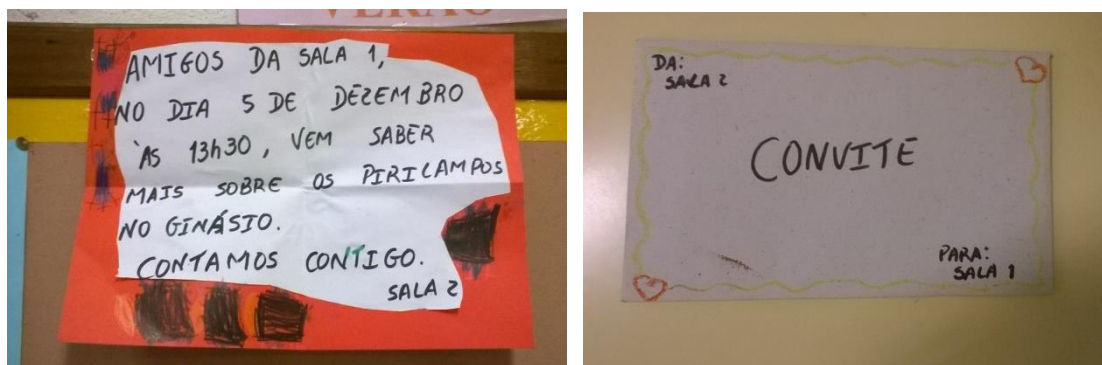 VERÃO
AMIGOS DA SALA 1,
NO DIA 5 DE DEZEMBRO
ÀS 13h30, VEM SABER
MAIS SOBRE OS PIRILAMPOS
NO GINÁSIO.
CONTAMOS CONTIGO.
SALA 2
DA:
SALA 2
CONVITE
PARA:
SALA 1